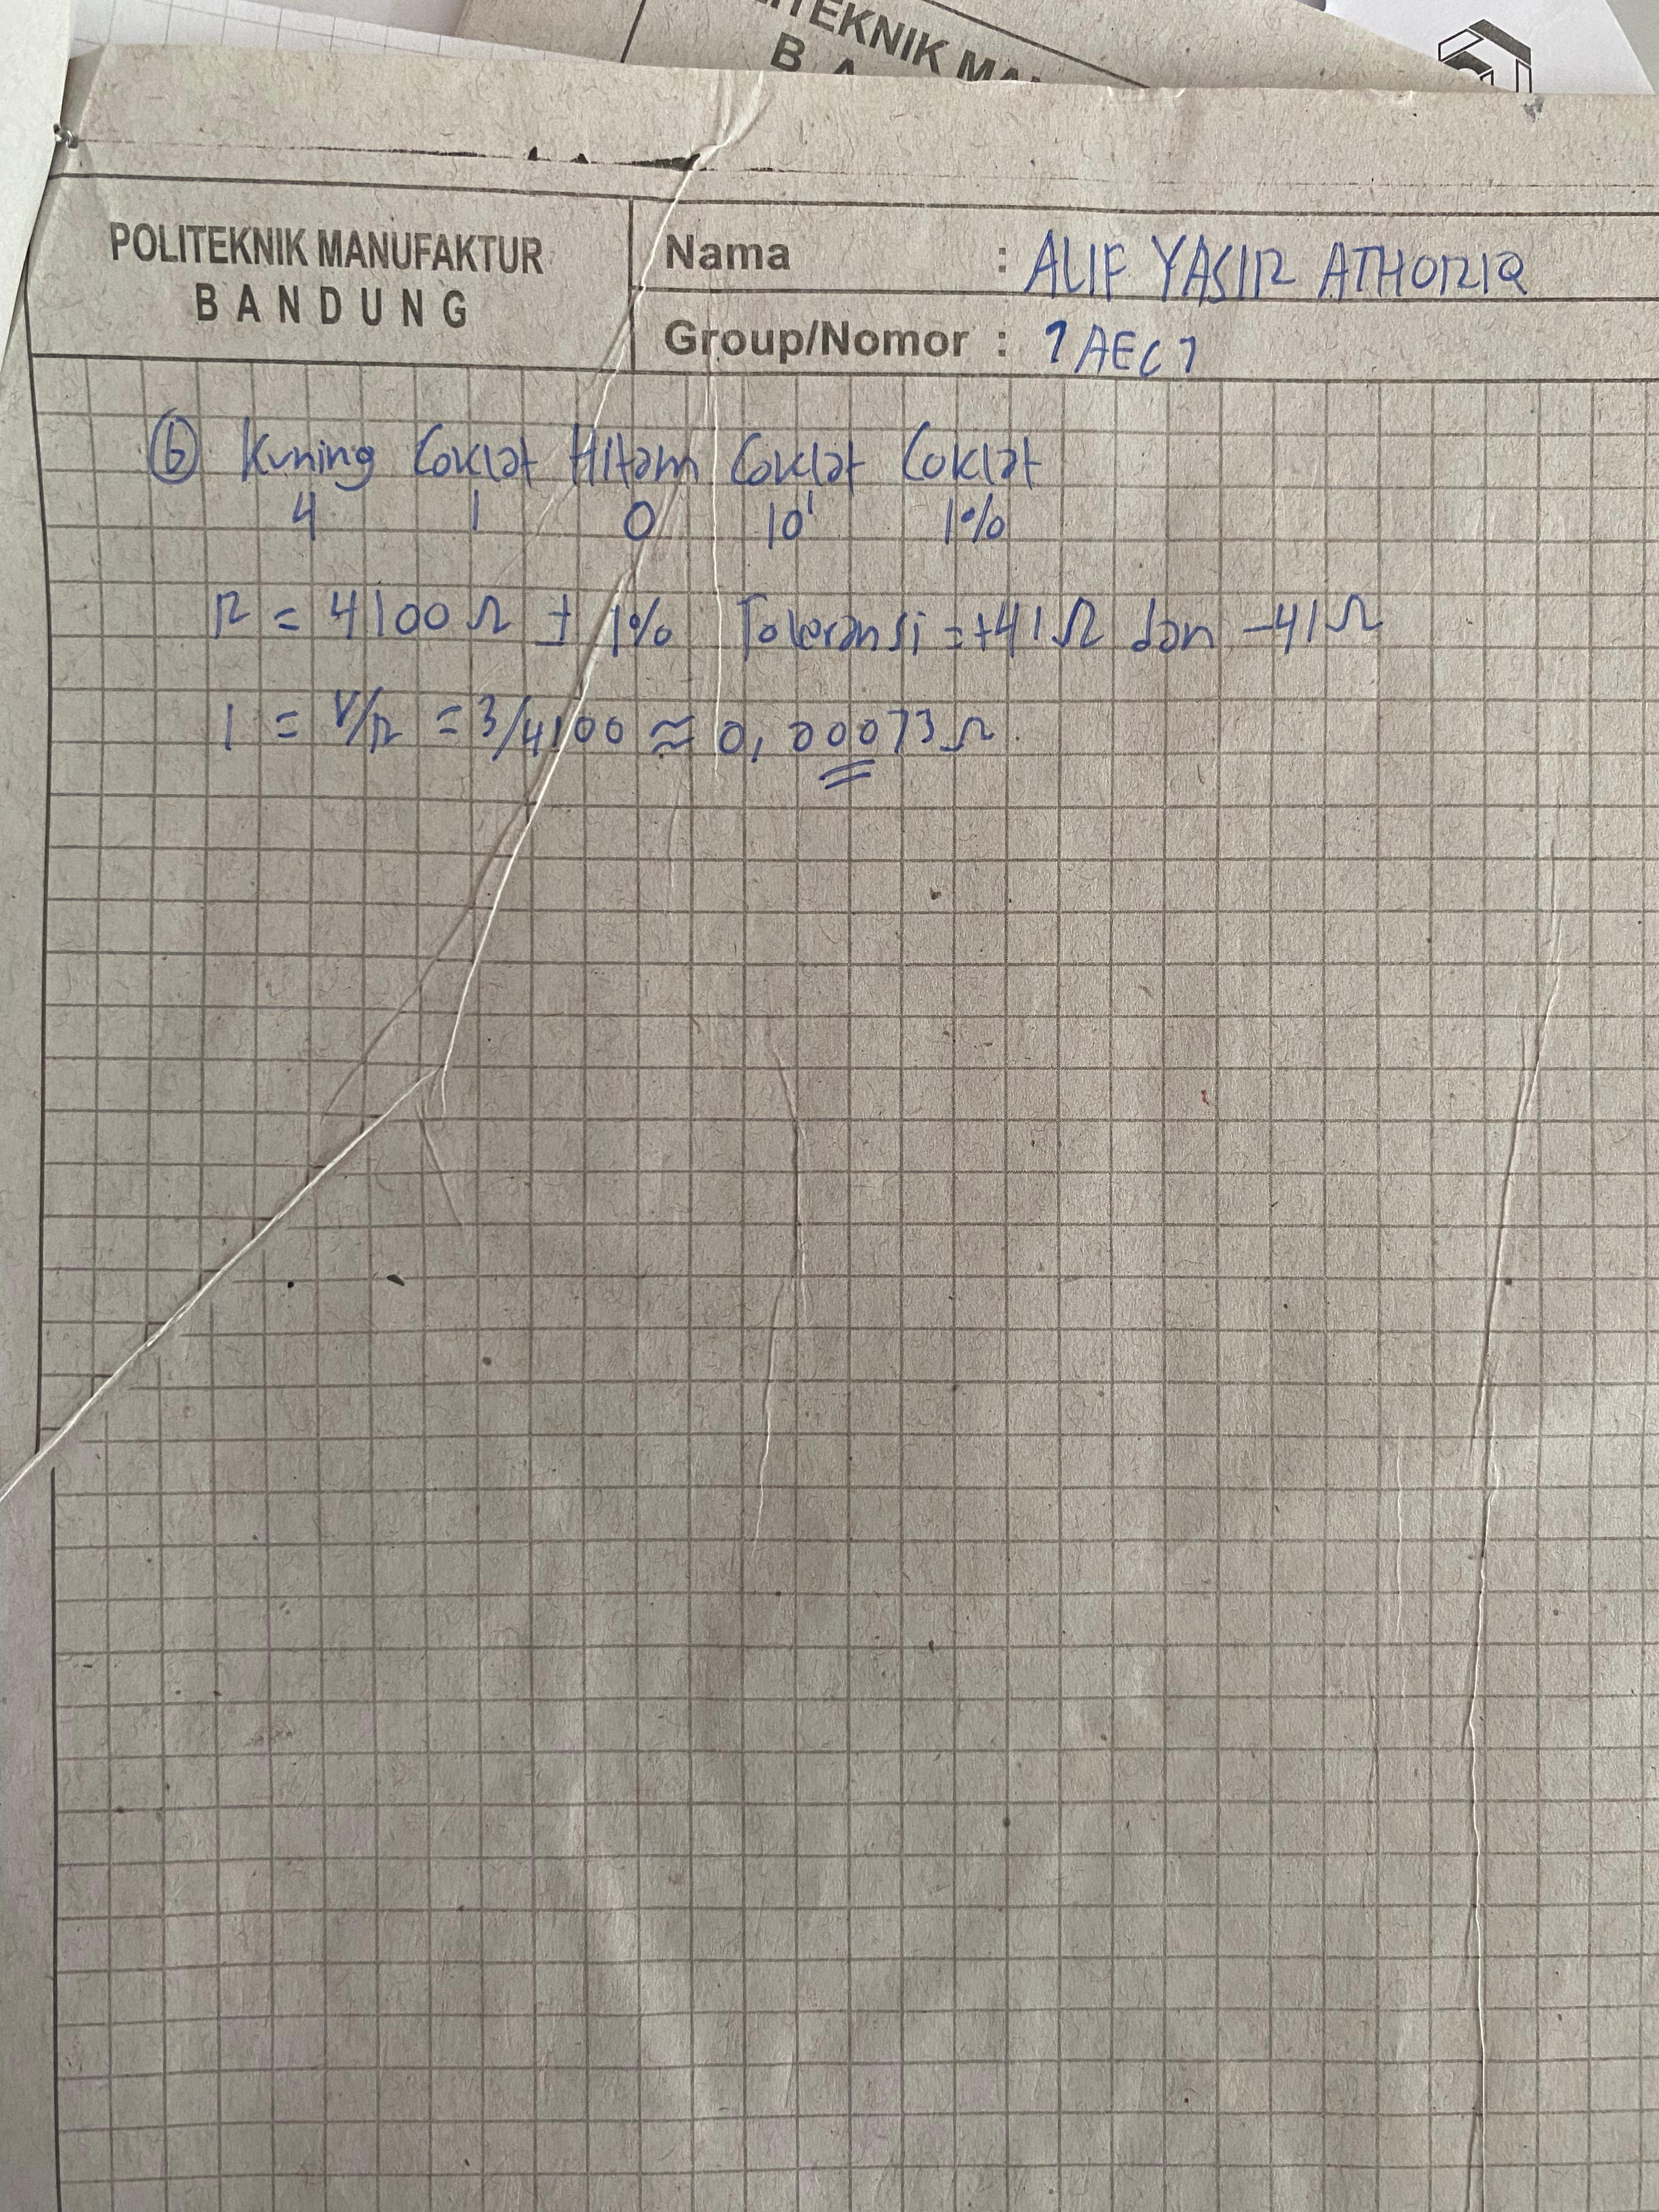 POLITEKNIK MANUFAKTUR
BANDUNG
Nama : ALIF YASIR ATHORIQ
Group/Nomor : 1 AEC 1
6 Kuning Coklat Hitam Coklat Coklat
4 1 0 10¹ 1%
R = 4100 Ω ± 1% Toleransi = +41 Ω dan -41 Ω
I = V/R = 3/4100 ≈ 0,00073 Ω